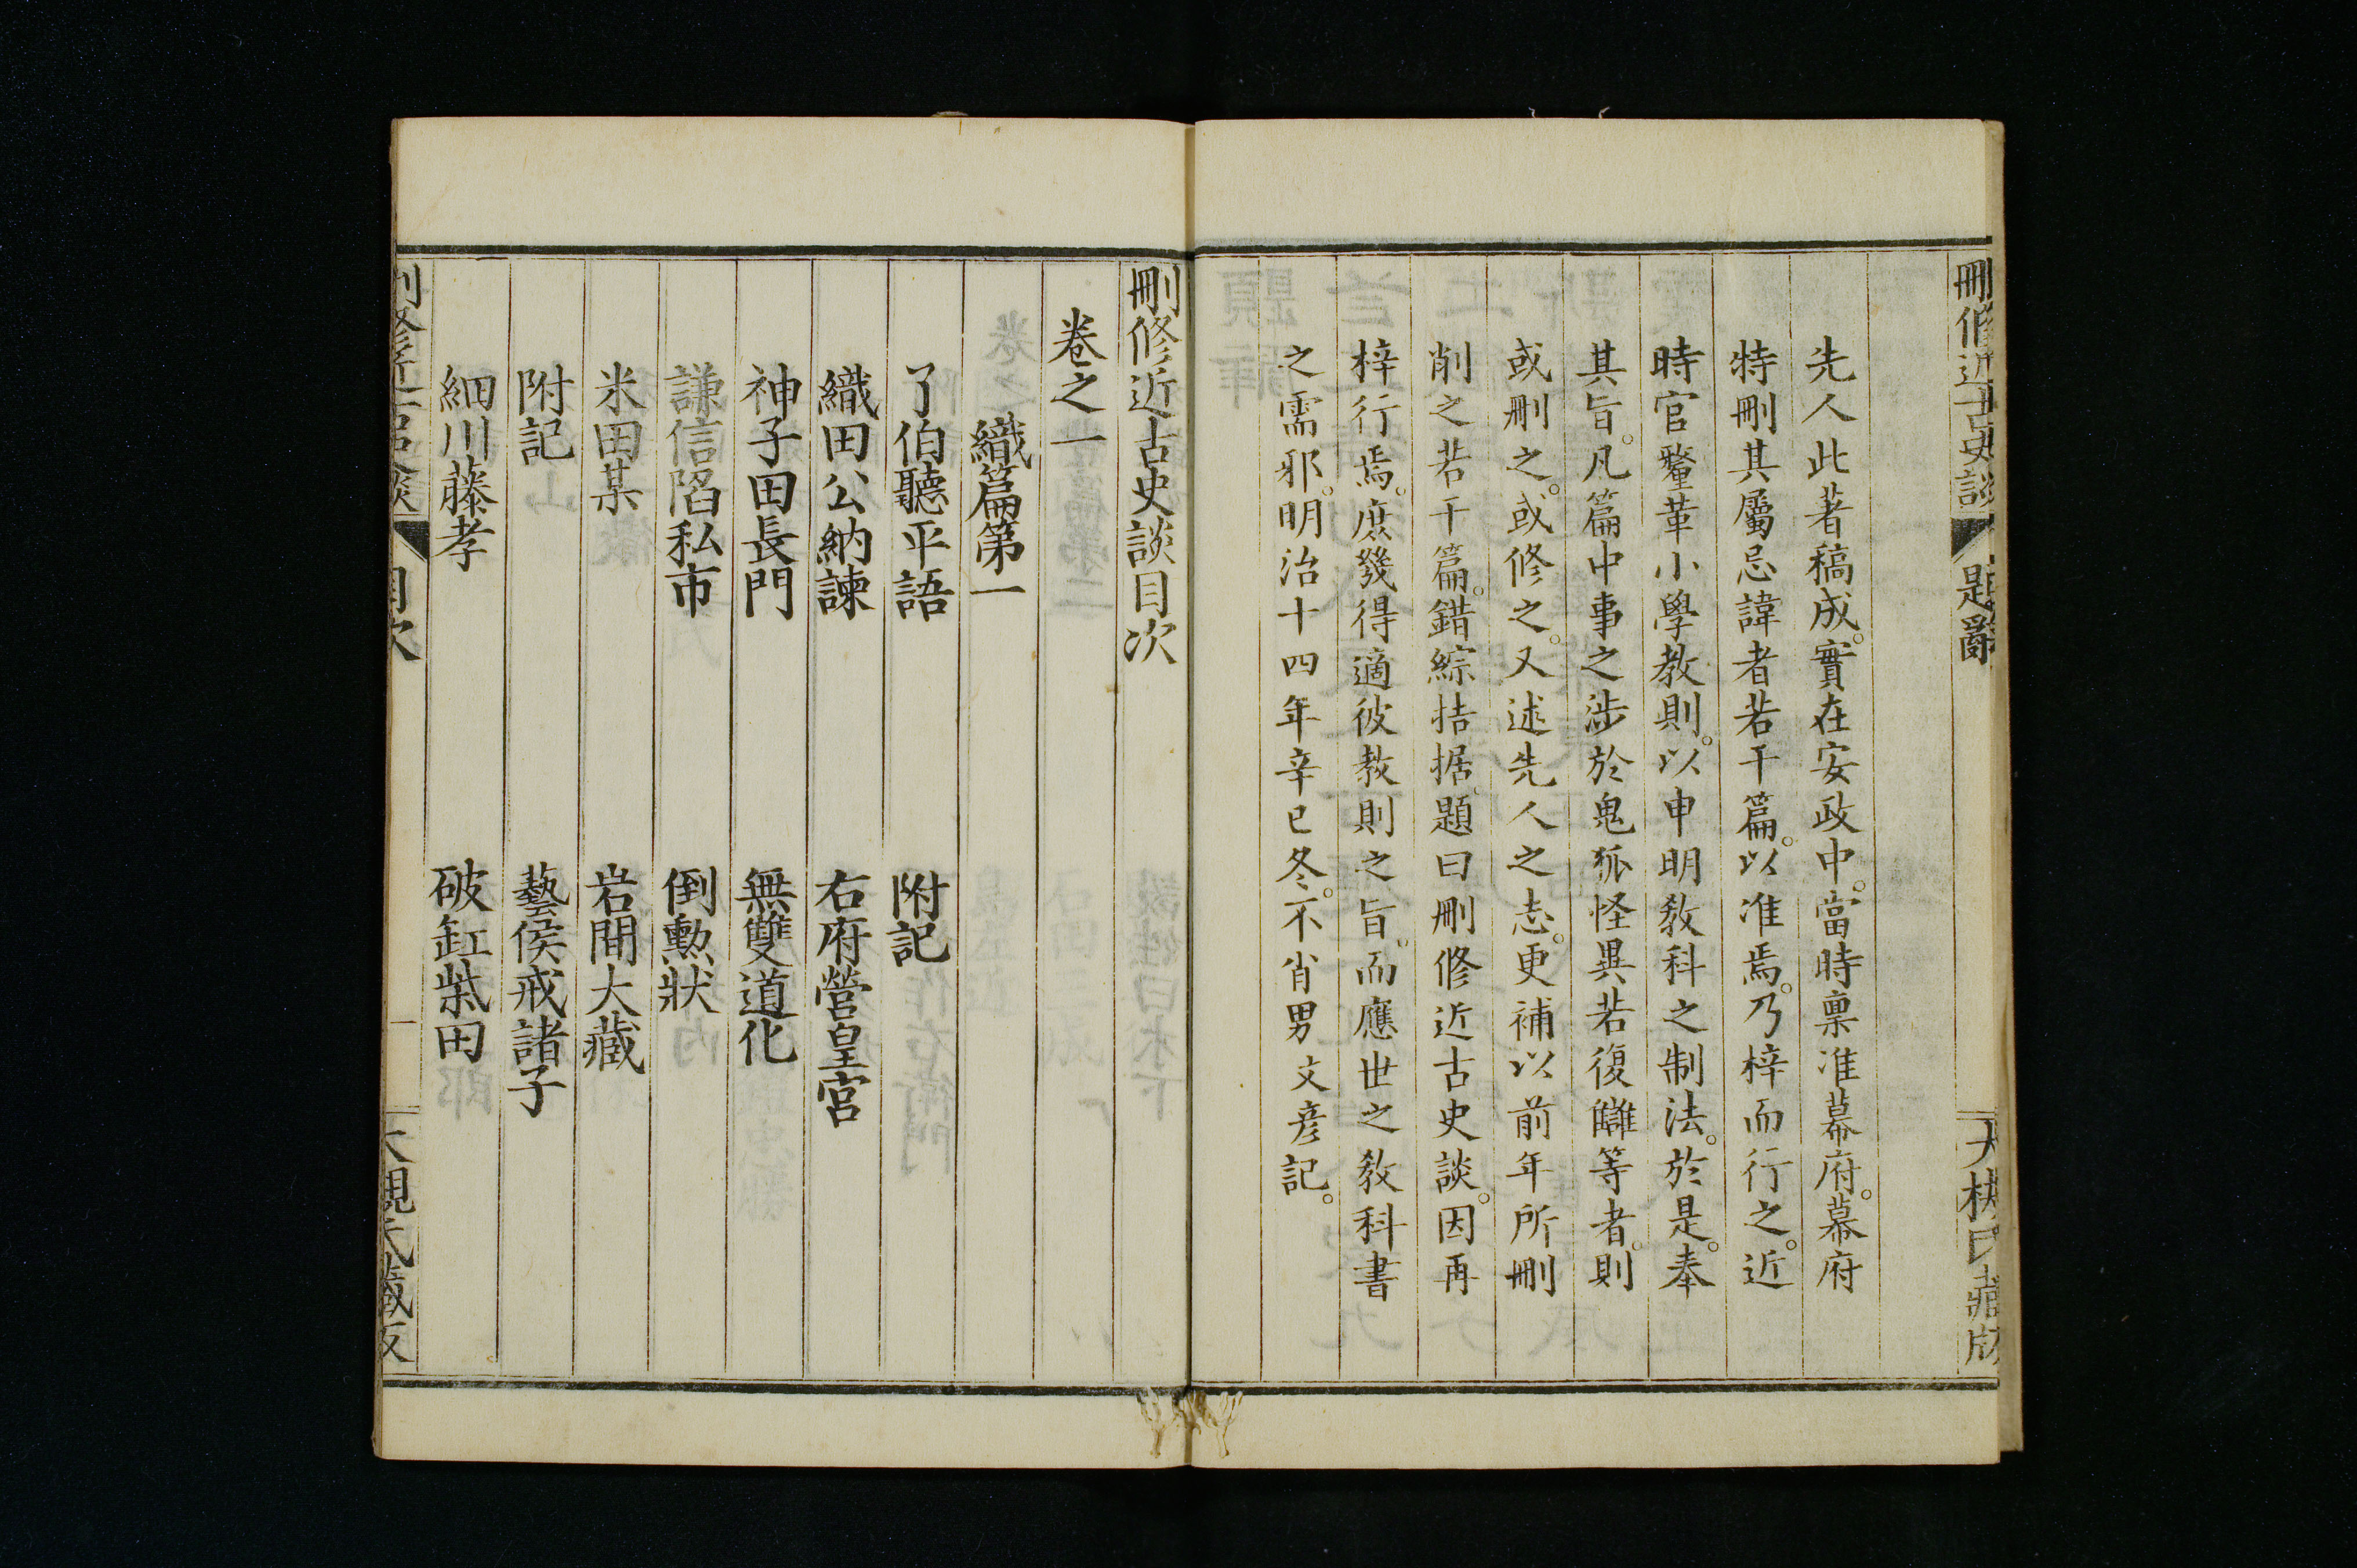 刪修近古史談 題辭 大槻氏藏版
先人此著稿成。實在安政中。當時稟准幕府。幕府
特刪其屬忌諱者若干篇。以准焉。乃梓而行之。近
時官釐革小學教則。以申明教科之制法。於是。奉
其旨。凡篇中事之涉於鬼狐怪異若復讎等者。則
或刪之。或修之。又述先人之志。更補以前年所刪
削之若干篇。錯綜拮据。題曰刪修近古史談。因再
梓行焉。庶幾得適彼教則之旨。而應世之教科書
之需邪。明治十四年辛巳冬。不肖男文彦記。
刪修近古史談目次
卷之一
織篇第一
了伯聽平語 附記
織田公納諫 右府營皇宮
神子田長門 無雙道化
謙信陷私市 倒勲狀
米田某 岩間大藏
附記 藝侯戒諸子
細川藤孝 破缸柴田
刪修近古史談 目次 一 大槻氏藏版